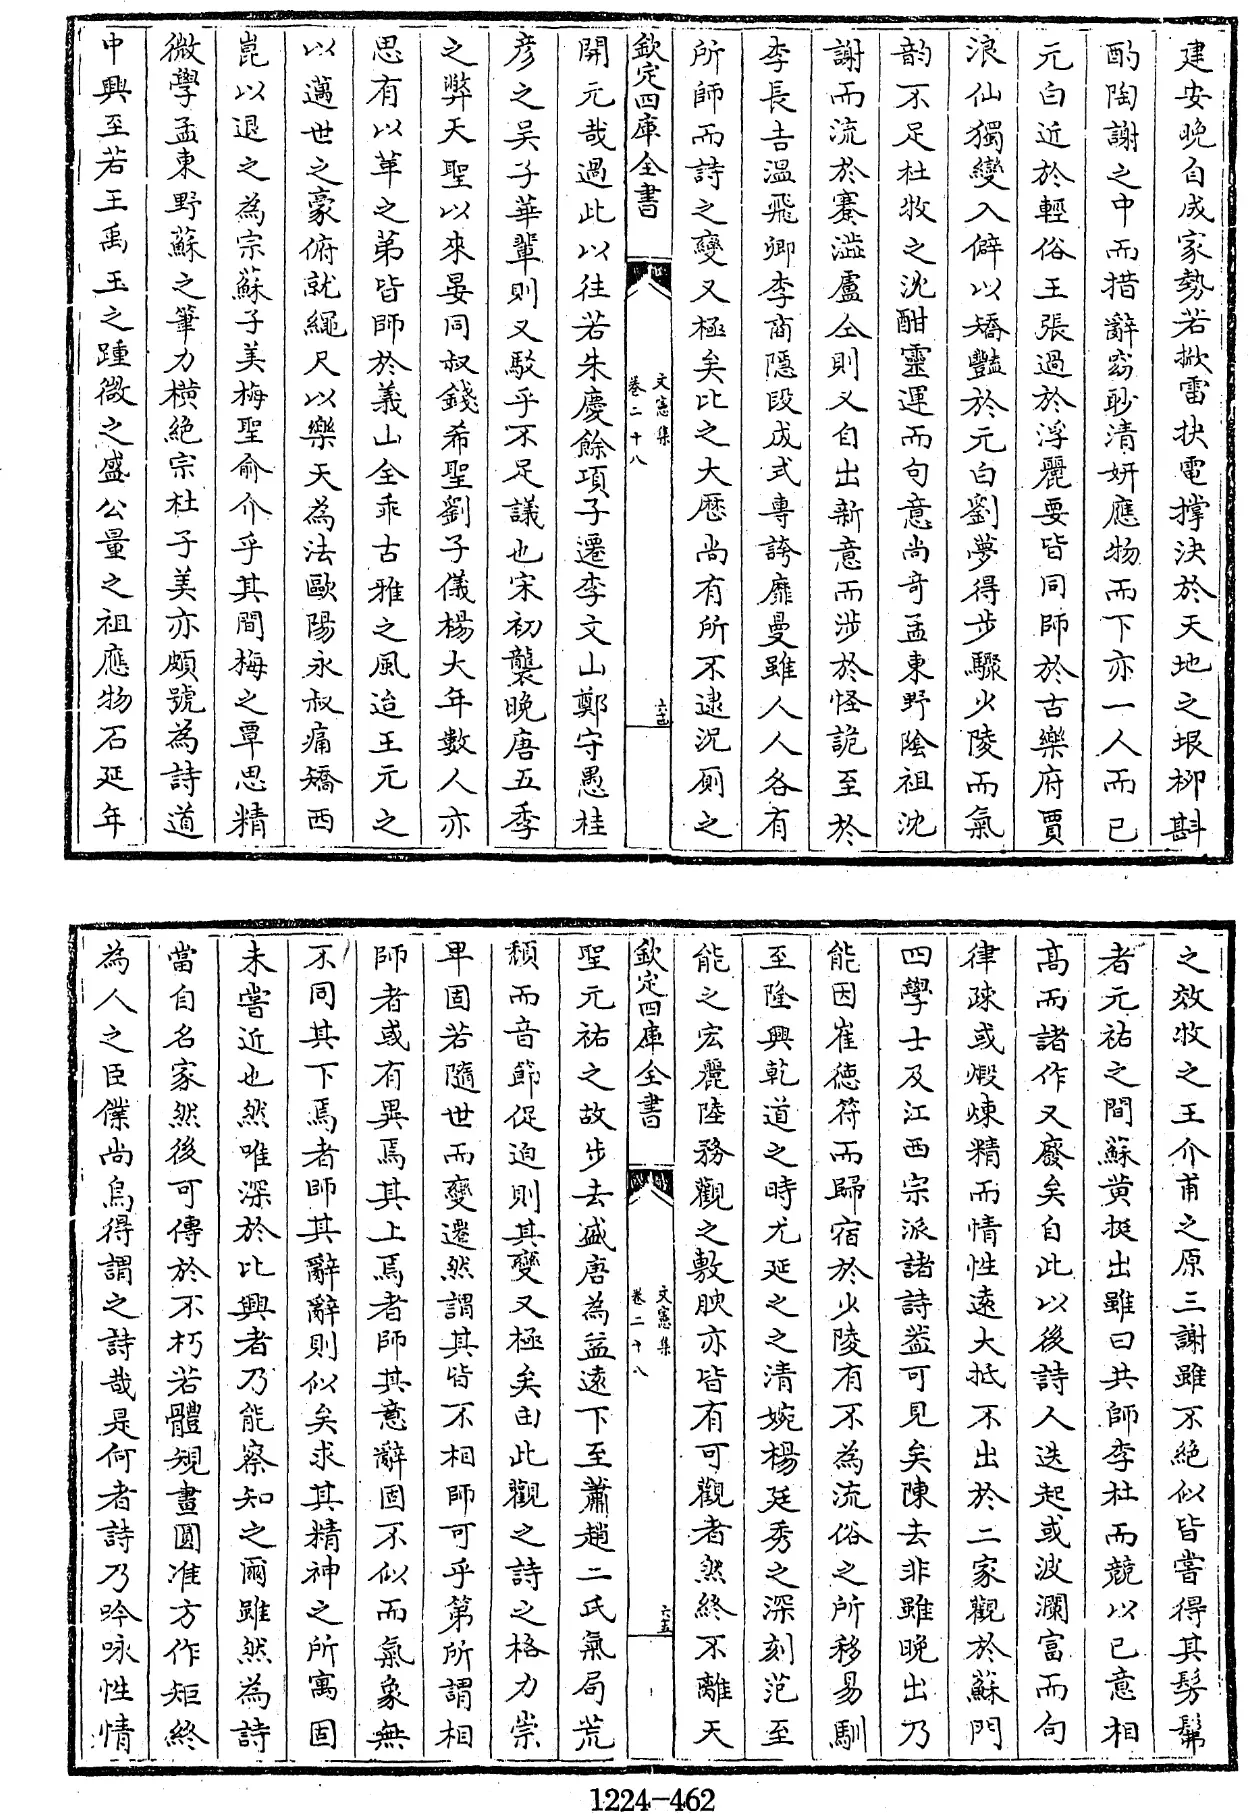 建安晚自成家勢若掀雷抉電撑決於天地之垠柳斟
酌陶謝之中而措辭窈眇清妍應物而下亦一人而已
元白近於輕俗王張過於浮麗要皆同師於古樂府賈
浪仙獨變入僻以矯豔於元白劉夢得步驟少陵而氣
韵不足杜牧之沈酣靈運而句意尚奇孟東野隂祖沈
謝而流於蹇澁盧仝則又自出新意而涉於怪詭至於
李長吉温飛卿李商隱段成式專誇靡曼雖人人各有
所師而詩之變又極矣比之大厯尚有所不逮況厠之
欽定四庫全書
文憲集
卷二十八
六十四
開元哉過此以往若朱慶餘項子遷李文山鄭守愚杜
彦之吴子華輩則又駁乎不足議也宋初襲晚唐五季
之弊天聖以來晏同叔錢希聖劉子儀楊大年數人亦
思有以革之第皆師於義山全乖古雅之風迨王元之
以邁世之豪俯就繩尺以樂天為法歐陽永叔痛矯西
崑以退之為宗蘇子美梅聖俞介乎其間梅之覃思精
微學孟東野蘇之筆力横絶宗杜子美亦頗號為詩道
中興至若王禹玉之踵徽之盛公量之祖應物石延年
之效牧之王介甫之原三謝雖不絶似皆嘗得其髣髴
者元祐之間蘇黄挺出雖曰共師李杜而競以已意相
高而諸作又廢矣自此以後詩人迭起或波瀾富而句
律疎或煅煉精而情性逺大抵不出於二家觀於蘇門
四學士及江西宗派諸詩葢可見矣陳去非雖晚出乃
能因崔徳符而歸宿於少陵有不為流俗之所移易馴
至隆興乾道之時尤延之之清婉楊廷秀之深刻范至
能之宏麗陸務觀之敷腴亦皆有可觀者然終不離天
欽定四庫全書
文憲集
卷二十八
六十五
聖元祐之故步去盛唐為益逺下至蕭趙二氏氣局荒
頽而音節促迫則其變又極矣由此觀之詩之格力崇
卑固若隨世而變遷然謂其皆不相師可乎第所謂相
師者或有異焉其上焉者師其意辭固不似而氣象無
不同其下焉者師其辭辭則似矣求其精神之所寓固
未嘗近也然唯深於比興者乃能察知之爾雖然為詩
當自名家然後可傳於不朽若體規畫圓准方作矩終
為人之臣僕尚烏得謂之詩哉是何者詩乃吟咏性情
1224-462